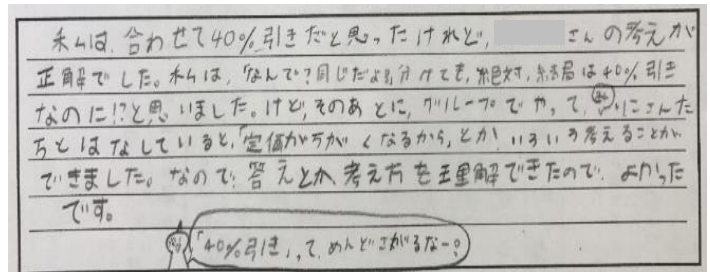 私は、合わせて40%引きだと思ったけれど、さんの考えが
正解でした。私は、「なんで？同じだよ、分けても、絶対、結局は40%引き
なのに!?と思いました。けど、そのあとに、グループでやって、にこさんた
ちとはなしていると、「定価がちがくなるから、とか、いろいろ考えることが
できました。なので、答えとか、考え方も理解できたので、よかった
です。
「40%引き」って、めんどさがるなー？